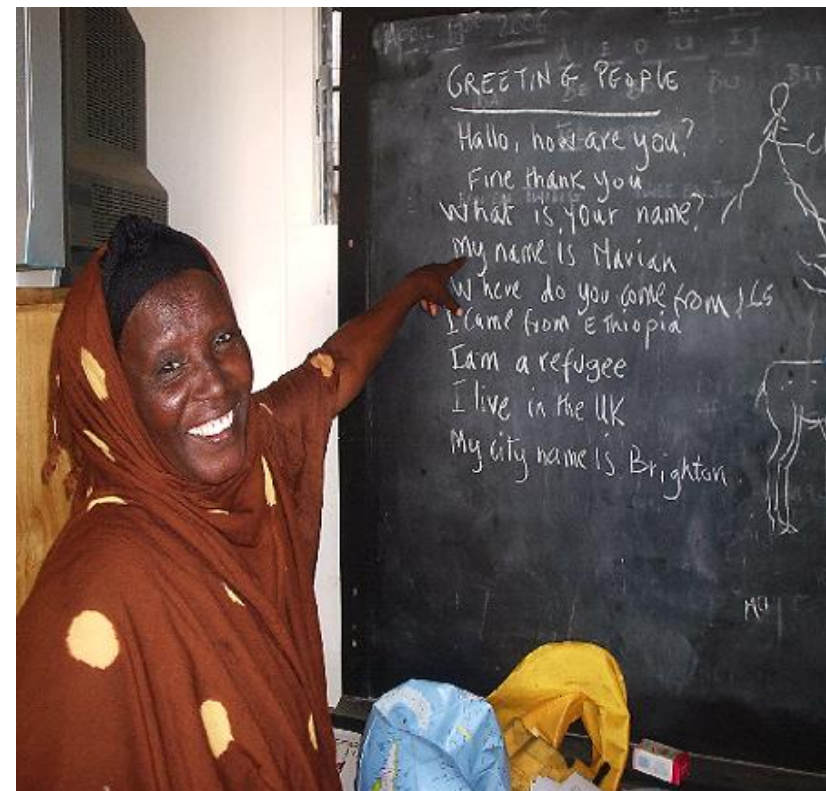 APRIL 2006
A E O U IJ
GREETING PEOPLE
BU BIJ
Hallo, how are you?
Fine thank you
What is your name?
My name is Marian
Where do you come from
I came from Ethiopia
I am a refugee
I live in the UK
My city name is Brighton